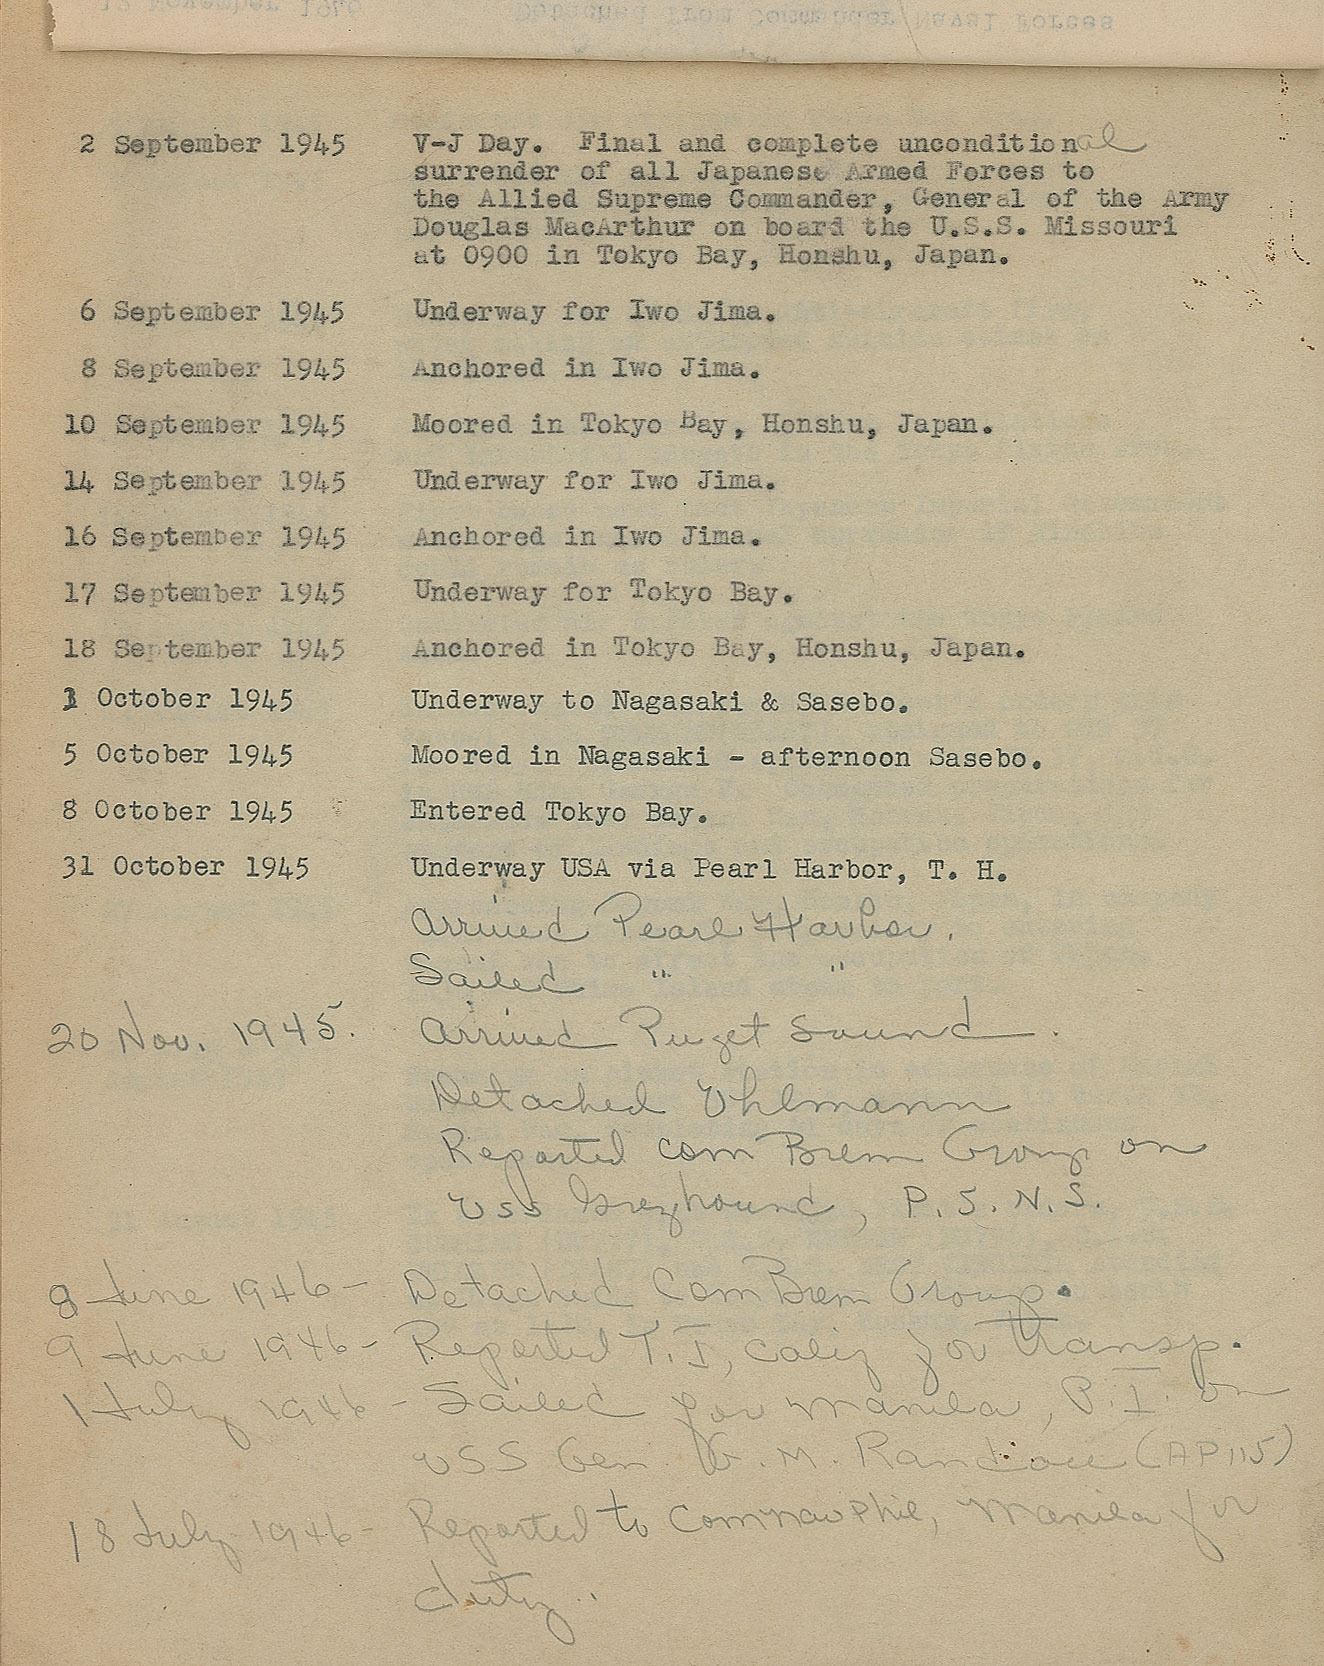 2 September 1945 V-J Day. Final and complete unconditional
surrender of all Japanese Armed Forces to
the Allied Supreme Commander, General of the Army
Douglas MacArthur on board the U.S.S. Missouri
at 0900 in Tokyo Bay, Honshu, Japan.
6 September 1945 Underway for Iwo Jima.
8 September 1945 Anchored in Iwo Jima.
10 September 1945 Moored in Tokyo Bay, Honshu, Japan.
14 September 1945 Underway for Iwo Jima.
16 September 1945 Anchored in Iwo Jima.
17 September 1945 Underway for Tokyo Bay.
18 September 1945 Anchored in Tokyo Bay, Honshu, Japan.
October 1945 Underway to Nagasaki & Sasebo.
5 October 1945 Moored in Nagasaki - afternoon Sasebo.
8 October 1945 Entered Tokyo Bay.
31 October 1945 Underway USA via Pearl Harbor, T. H.
Arrived Pearl Harbor.
Sailed " "
20 Nov. 1945. Arrived Puget Sound.
Detached Uhlmann
Reported Com Brem Group on
USS Greyhound, P.S.N.S.
8 June 1946 - Detached Com Brem Group.
9 June 1946 - Reported T.I, Calif for transp.
1 July 1946 - Sailed for Manila, P.I. on
USS Gen. G. M. Randall (AP 115)
18 July 1946 - Reported to ComNavPhil, Manila for
duty.